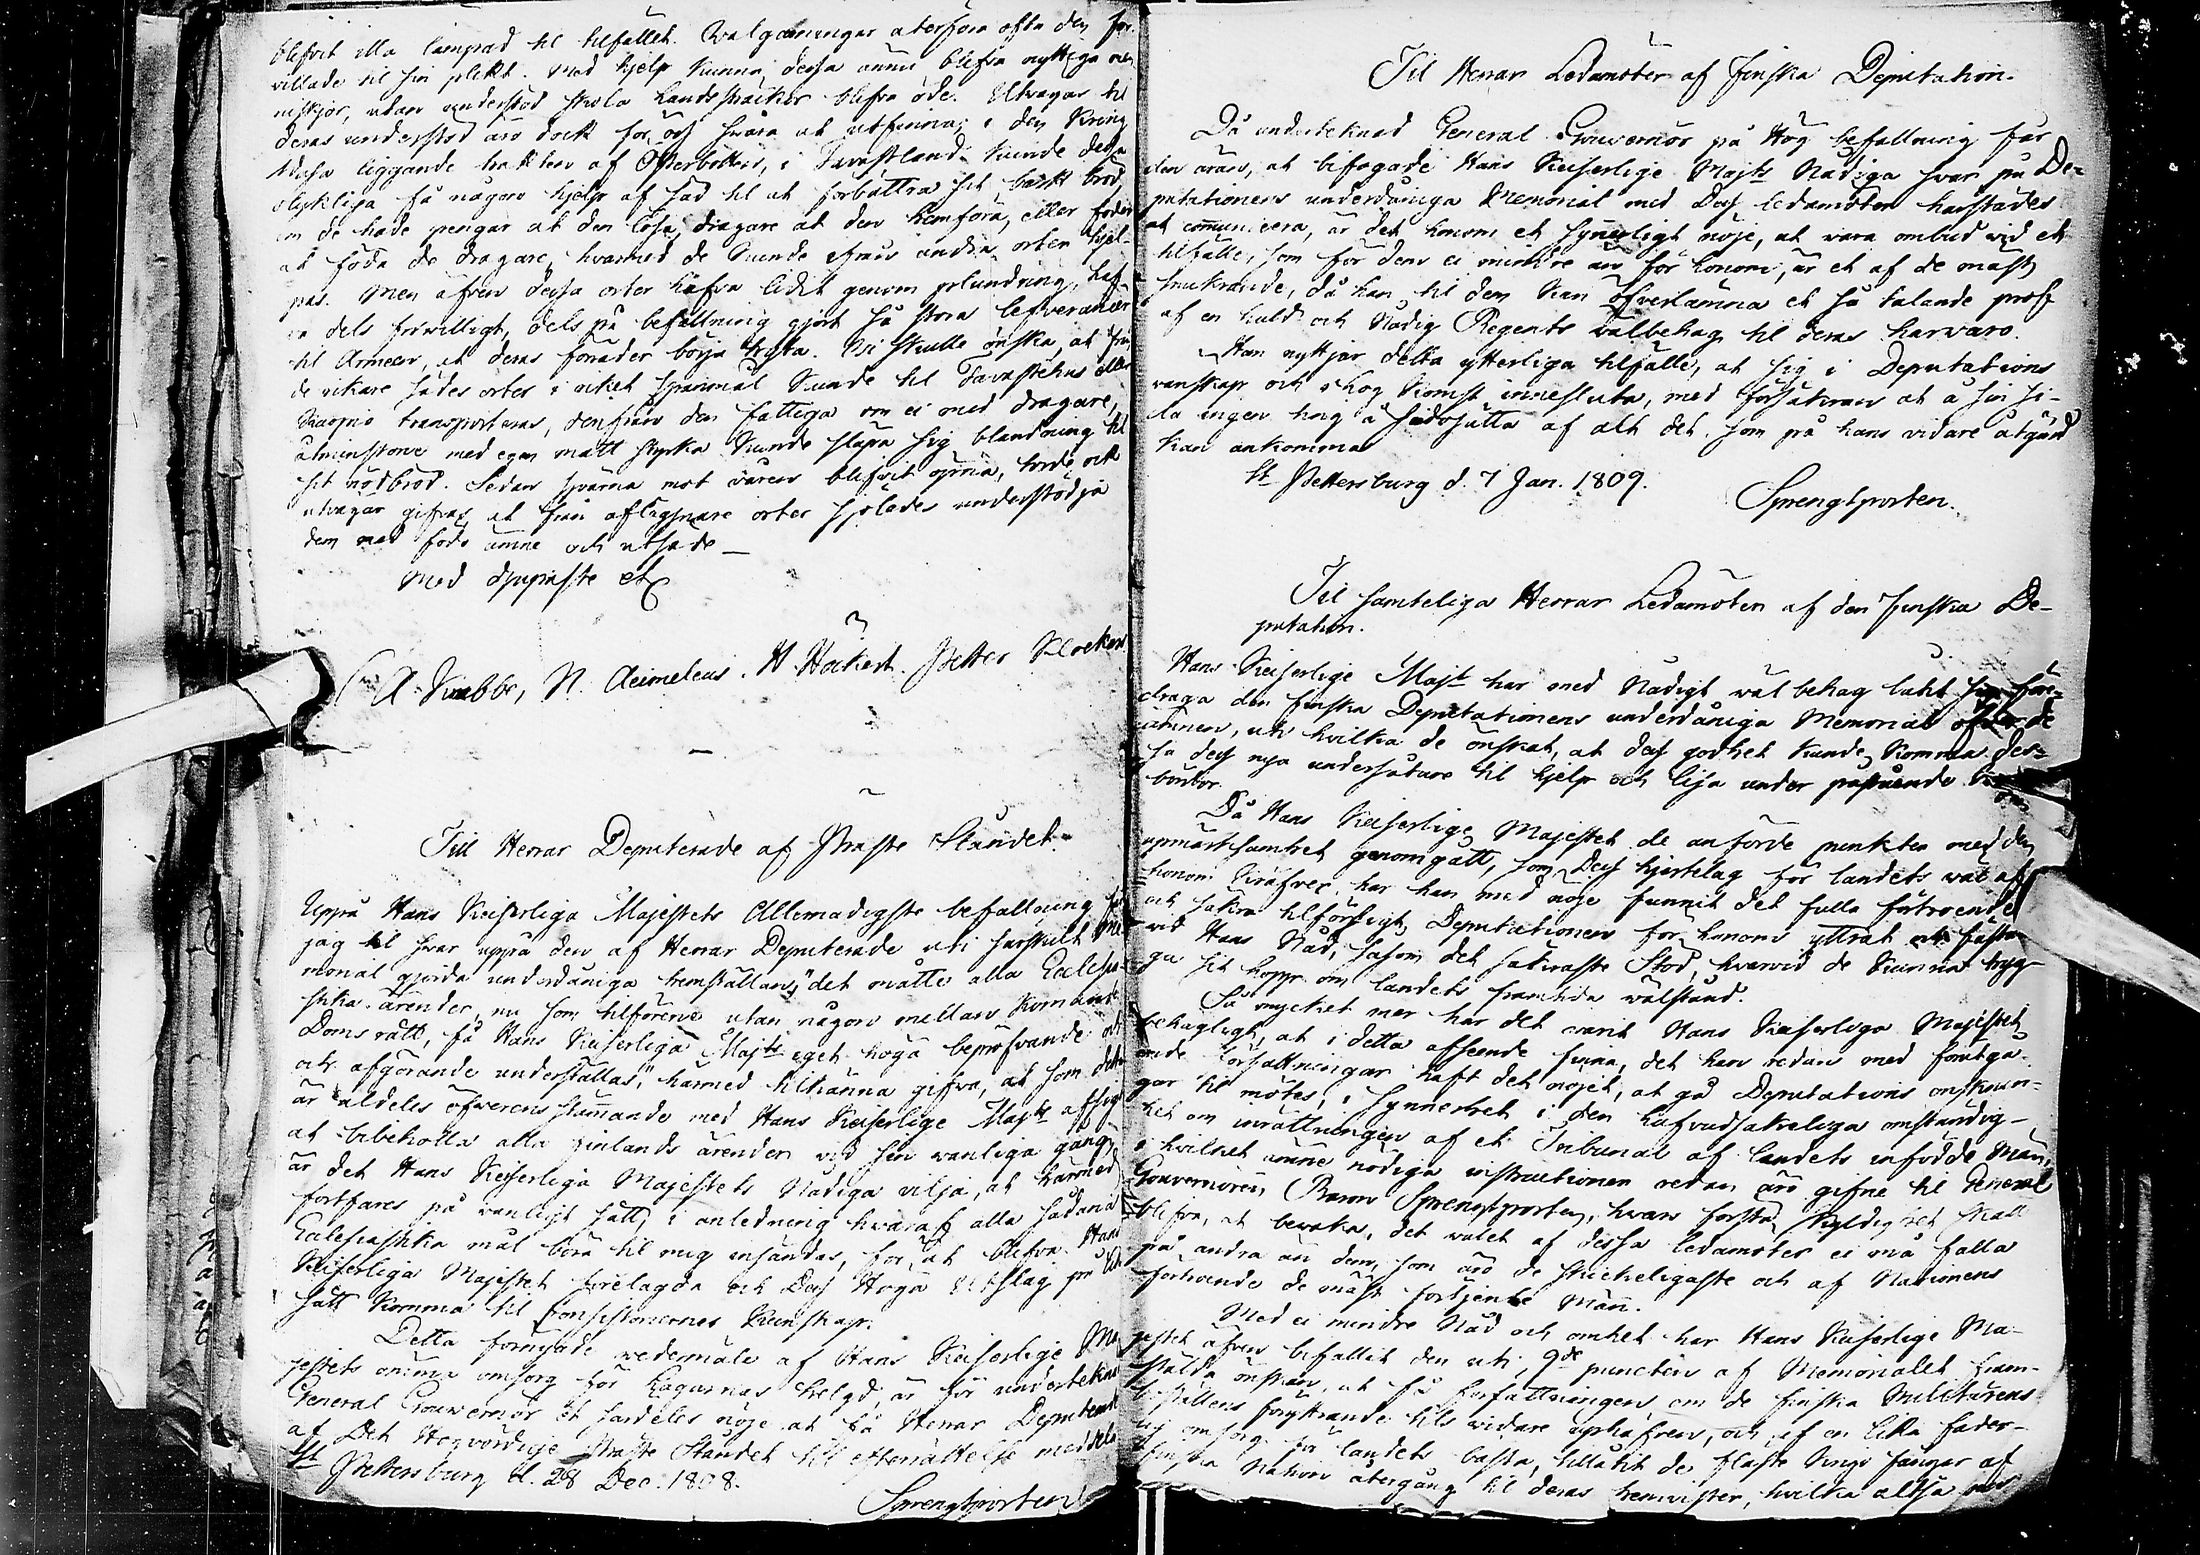 blefvit illa lämpad til tilfället. Wälgärningar återföra ofta den för-
villade til sin plikt. Med hjelp kunna dessa ännu blifva nyttiga me-
niskjor, utan understöd skola Landssträckor blifva öde. Utvägar til
deras understöd äro dock för oss svåra at utfinna; i den kring
Wasa liggande trakten af Österbotten, i Tavastland kunde dessa
olyckliga få någon hjelp af säd til at förbättra sit barkbröd,
om de hade pengar at den lösa, dragare at den hemföra, eller foder
at föda de dragare, hvarmed de kunde ifrån andra orter hjel-
pas. Men äfven dessa orter hafva lidit genom plundring, haf-
va dels friwilligt, dels på befallning gjort så stora lefverancer
til Armeen, at deras förråder börja tryta. Wi skulle önska, at från
de rikare sädes orter i riket spanmål kunde til Tavastehus eller
Kuopio transporteras, denfrån den fattiga om ei med dragare,
åtminstone med egen matt styrka kunde släpa sig blandning til
sit nödbröd. Sedan sjöarna mot våren blifvit öpna, torde ock
utvägar gifvas, at från aflägsnare orter sjöledes understödja
dem med födo ämne och utsäde —
Med djupaste etc
C. A. Krabbe, N. Aeimeleus. H. Häkert. Petter Klockars
Till Herrar Deputerade af Präste Ståndet.
Uppå Hans Keiserliga Majestets Allernådigste befallning får
jag til svar uppå den af Herrar Deputerade uti särskilt Me-
morial gjorda underdåniga hemställan, "det måtte alla Ecclesia-
stika ärender, nu som tilförene utan någon mellan kommande
Doms rätt, få Hans Keiserliga Majts eget höga bepröfvande och
och afgörande underställas," härmed tilkänna gifva, at som detta
är aldeles öfwerens stämmande med Hans Keiserlige Majts afsigt
at bibehålla alla Finlands ärender vid sin vanliga gång,
är det Hans Keiserliga Majestets Nådiga vilja, at härmed
fortfares på vanligt sätt, i anledning hwaraf alla sådana
Ecclesiastika mål böra til mig insändas, för, at blifva Hans
Keiserliga Majestet förelagda och Dess Höga Utslag på
sätt komma til Consistoriernes kunskap.
Detta förnyade wedermäle af Hans Keiserlige Ma-
jestets ömma omsorg för Lagarnas helgd, är för undertekna
General Gouverneur et särdeles nöje at få Herrar Deputerade
af Det Högvördige Präste Ståndet til efterrättelse meddela
St Pettersburg d. 28 Dec. 1808.
Sprengtporten
Til Herrar Ledamöter af Finska Deputation.
Då undertecknad General Gouvernör på Hög befallning får
den äran, at bifogade Hans Keiserlige Majts Nådiga svar på De-
putationens underdåniga Memorial med Dess ledamöter härstädes
at communicera, är det honom et synnerligt nöje, at vara ombud wid et
tilfälle, som för dem ei mindre än för honom, är et af de mäst
smickrande, då han til dem kan öfverlämna et så talande prof
af en huld och Nådig Regents wälbehag til deras härvaro.
Han nyttjar detta ytterliga tilfälle, at sig i Deputations
vänskap och ihogkomst innesluta, med försäkran at å sin si-
da ingen hog å sidosätta af alt det, som på hans vidare åtgärd
kan ankomma
St Pettersburg d. 7 Jan. 1809.
Sprengtporten.
Til samteliga Herrar Ledamöter af den Finska De-
putation.
Hans Keiserlige Majt har med Nådigt välbehag lutit sig före-
draga den Finska Deputationens underdåniga Memorial öfver de
ämnen, uti hvilka de önskat, at dess godhet kunde komma des-
sa dess nya undersåtare til hjelp och lisa under påstående
bördor.
Då Hans Keiserlige Majestet de anförde punkter med den
upmärksamhet genomgått, som Dess hjertelag för landets wäl af
honom kräfver, har han med nöje funnit det fulla förtroende
och säkra tilförsigt, Deputationen för honom yttrat och fästa
vid Hans Nåd, såsom det säkraste Stöd, hvarvid de kunna tryg-
ga sit hopp om landets framtida wälstånd.
Så mycket mer har det varit Hans Keiserliga Majestet
behagligt, at i detta afseende finna, det han redan med föregå-
ende författningar haft det nöjet, at gå Deputations önsknin-
gar til mötes, i synnerhet i den hufvudsakeliga omständig-
het om inrättningen af et Tribunal af landets infödde Män,
i hvilket ämne nödiga instructioner redan äro gifne til General
Gouverneuren Baron Sprengtporten, hvars första skyldighet skall
blifva, at bevaka, det valet af dessa ledamöter ei må falla
på andra än dem, som äro de skickeligaste och af Nationens
förtroende de mäst förtjente Män.
Med ei mindre Nåd och ömhet har Hans Keiserlige Ma-
jestet äfven befallit den uti 9de puncten af Memorialet fram-
stälda önskan, at få författningen om de finska Militärens
boställens förytrande tils vidare uphäfven, och af en lika fader-
lig omsorg för landets bästa, tillåtit de fläste Krigs fångar af
finska Nation återgång til deras hemvister, hvilka altså med